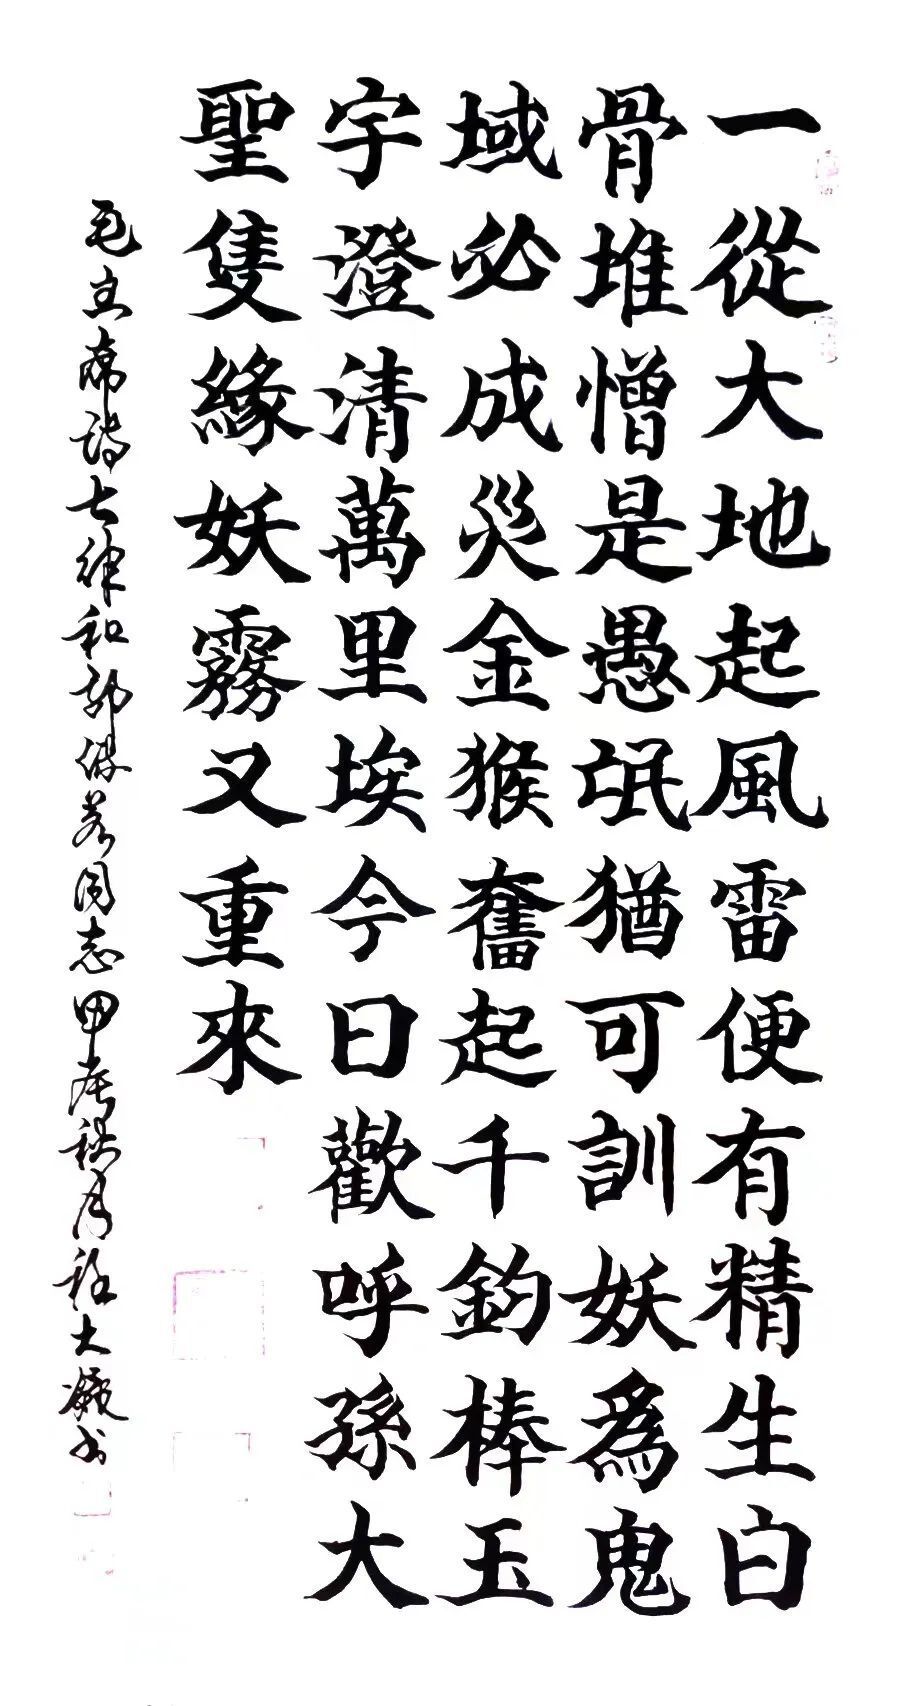 一從大地起風雷便有精生白
骨堆憎是愚氓猶可訓妖爲鬼
域必成災金猴奮起千鈞棒玉
宇澄清萬里埃今日歡呼孫大
聖隻緣妖霧又重來
毛主席詩七律和郭沫若同志甲辰秋月大书